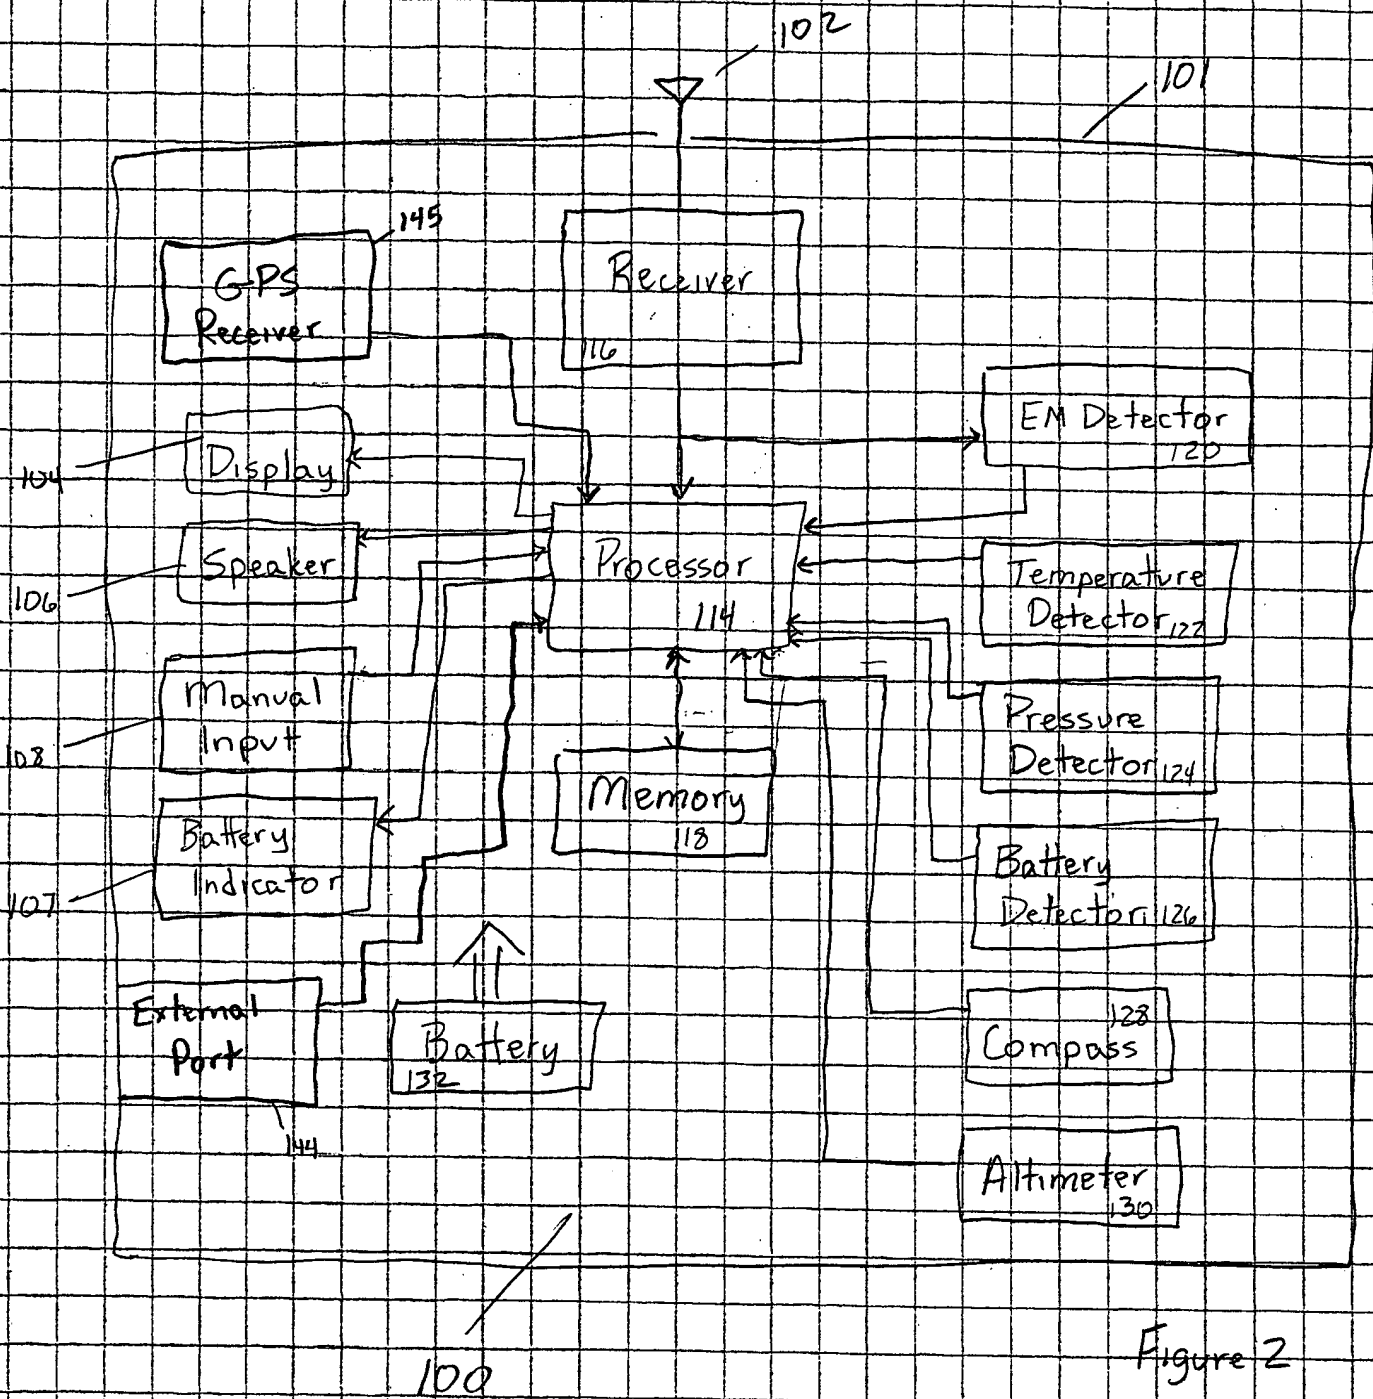 102
101
145
GPS
Receiver
Receiver
116
EM Detector
120
104
Display
Speaker
106
Processor
114
Temperature
Detector 122
Manual
Input
108
Pressure
Detector 124
Memory
118
Battery
Indicator
107
Battery
Detector 126
External
Port
144
Battery
132
128
Compass
Altimeter
130
100
Figure 2